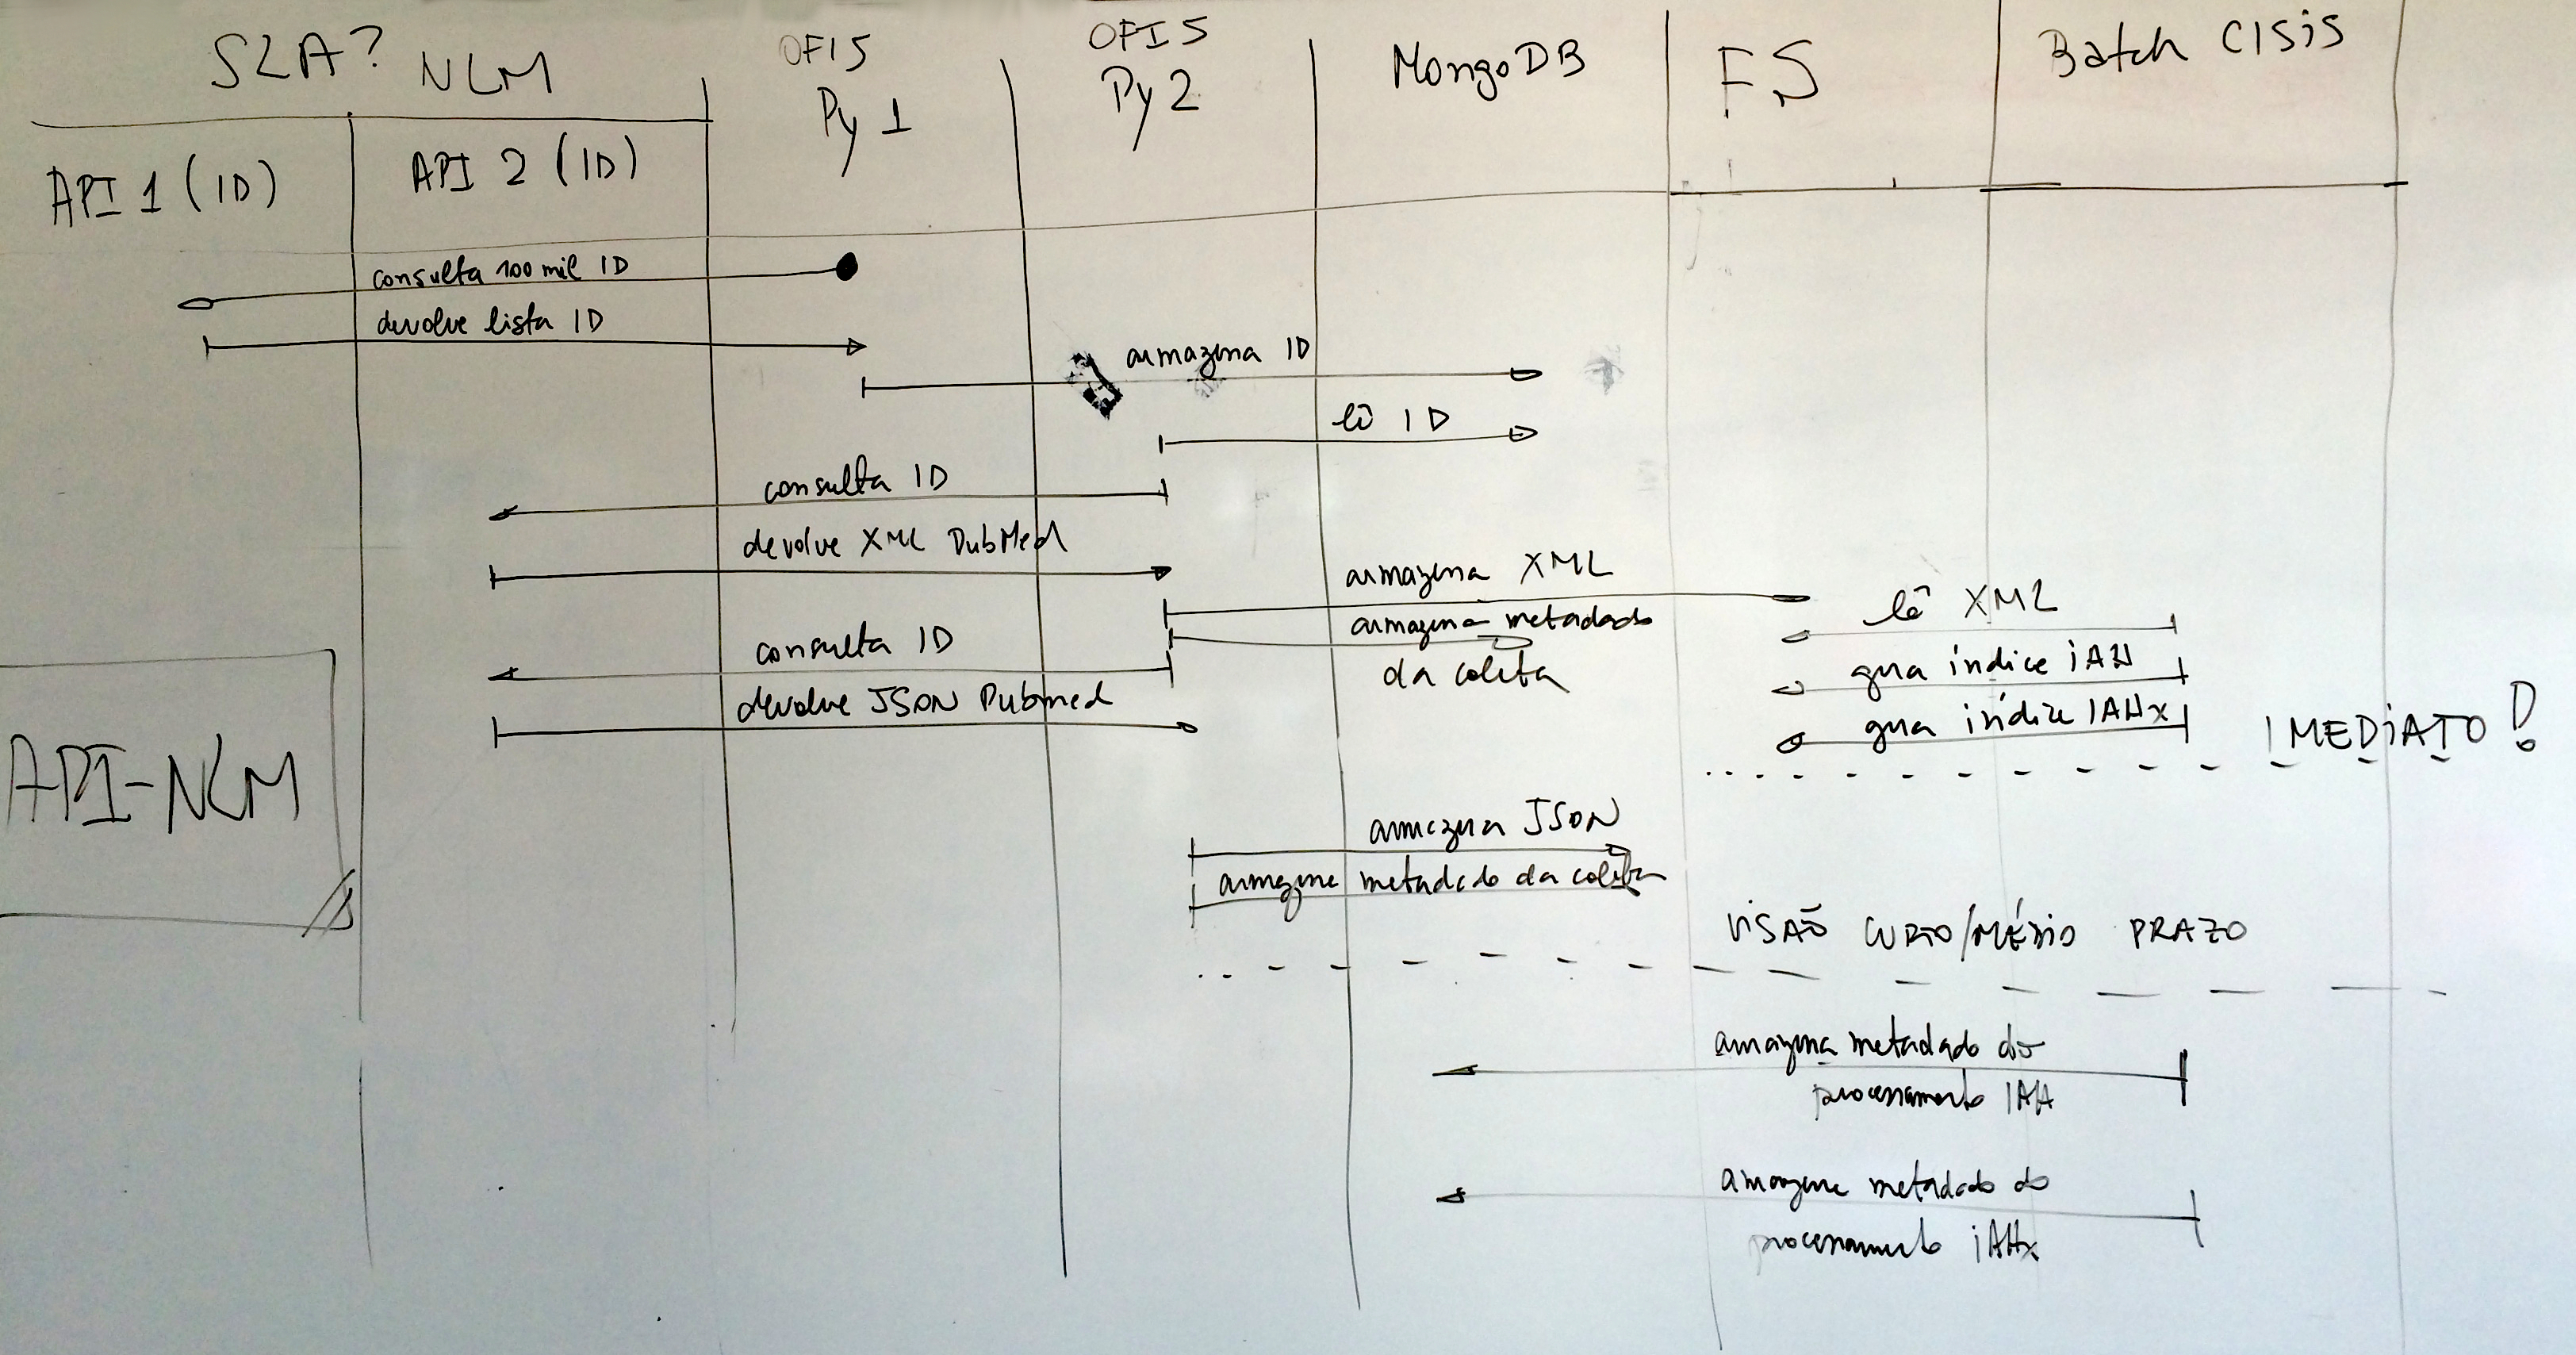 SLA? NLM
OFI5
Py 1
OFI5
Py 2
MongoDB
FS
Batch CISIS
API 1 (ID)
API 2 (ID)
consulta 100 mil ID
devolve lista ID
armazena ID
lê ID
consulta ID
devolve XML PubMed
armazena XML
armazena metadado
da coleta
lê XML
gera índice iAH
gera índice IAHx
IMEDIATO!
consulta ID
devolve JSON Pubmed
API-NLM
armazena JSON
armazena metadado da coleta
VISÃO CURTO/MÉDIO PRAZO
armazena metadado do
processamento IAH
armazena metadado do
processamento iAHx